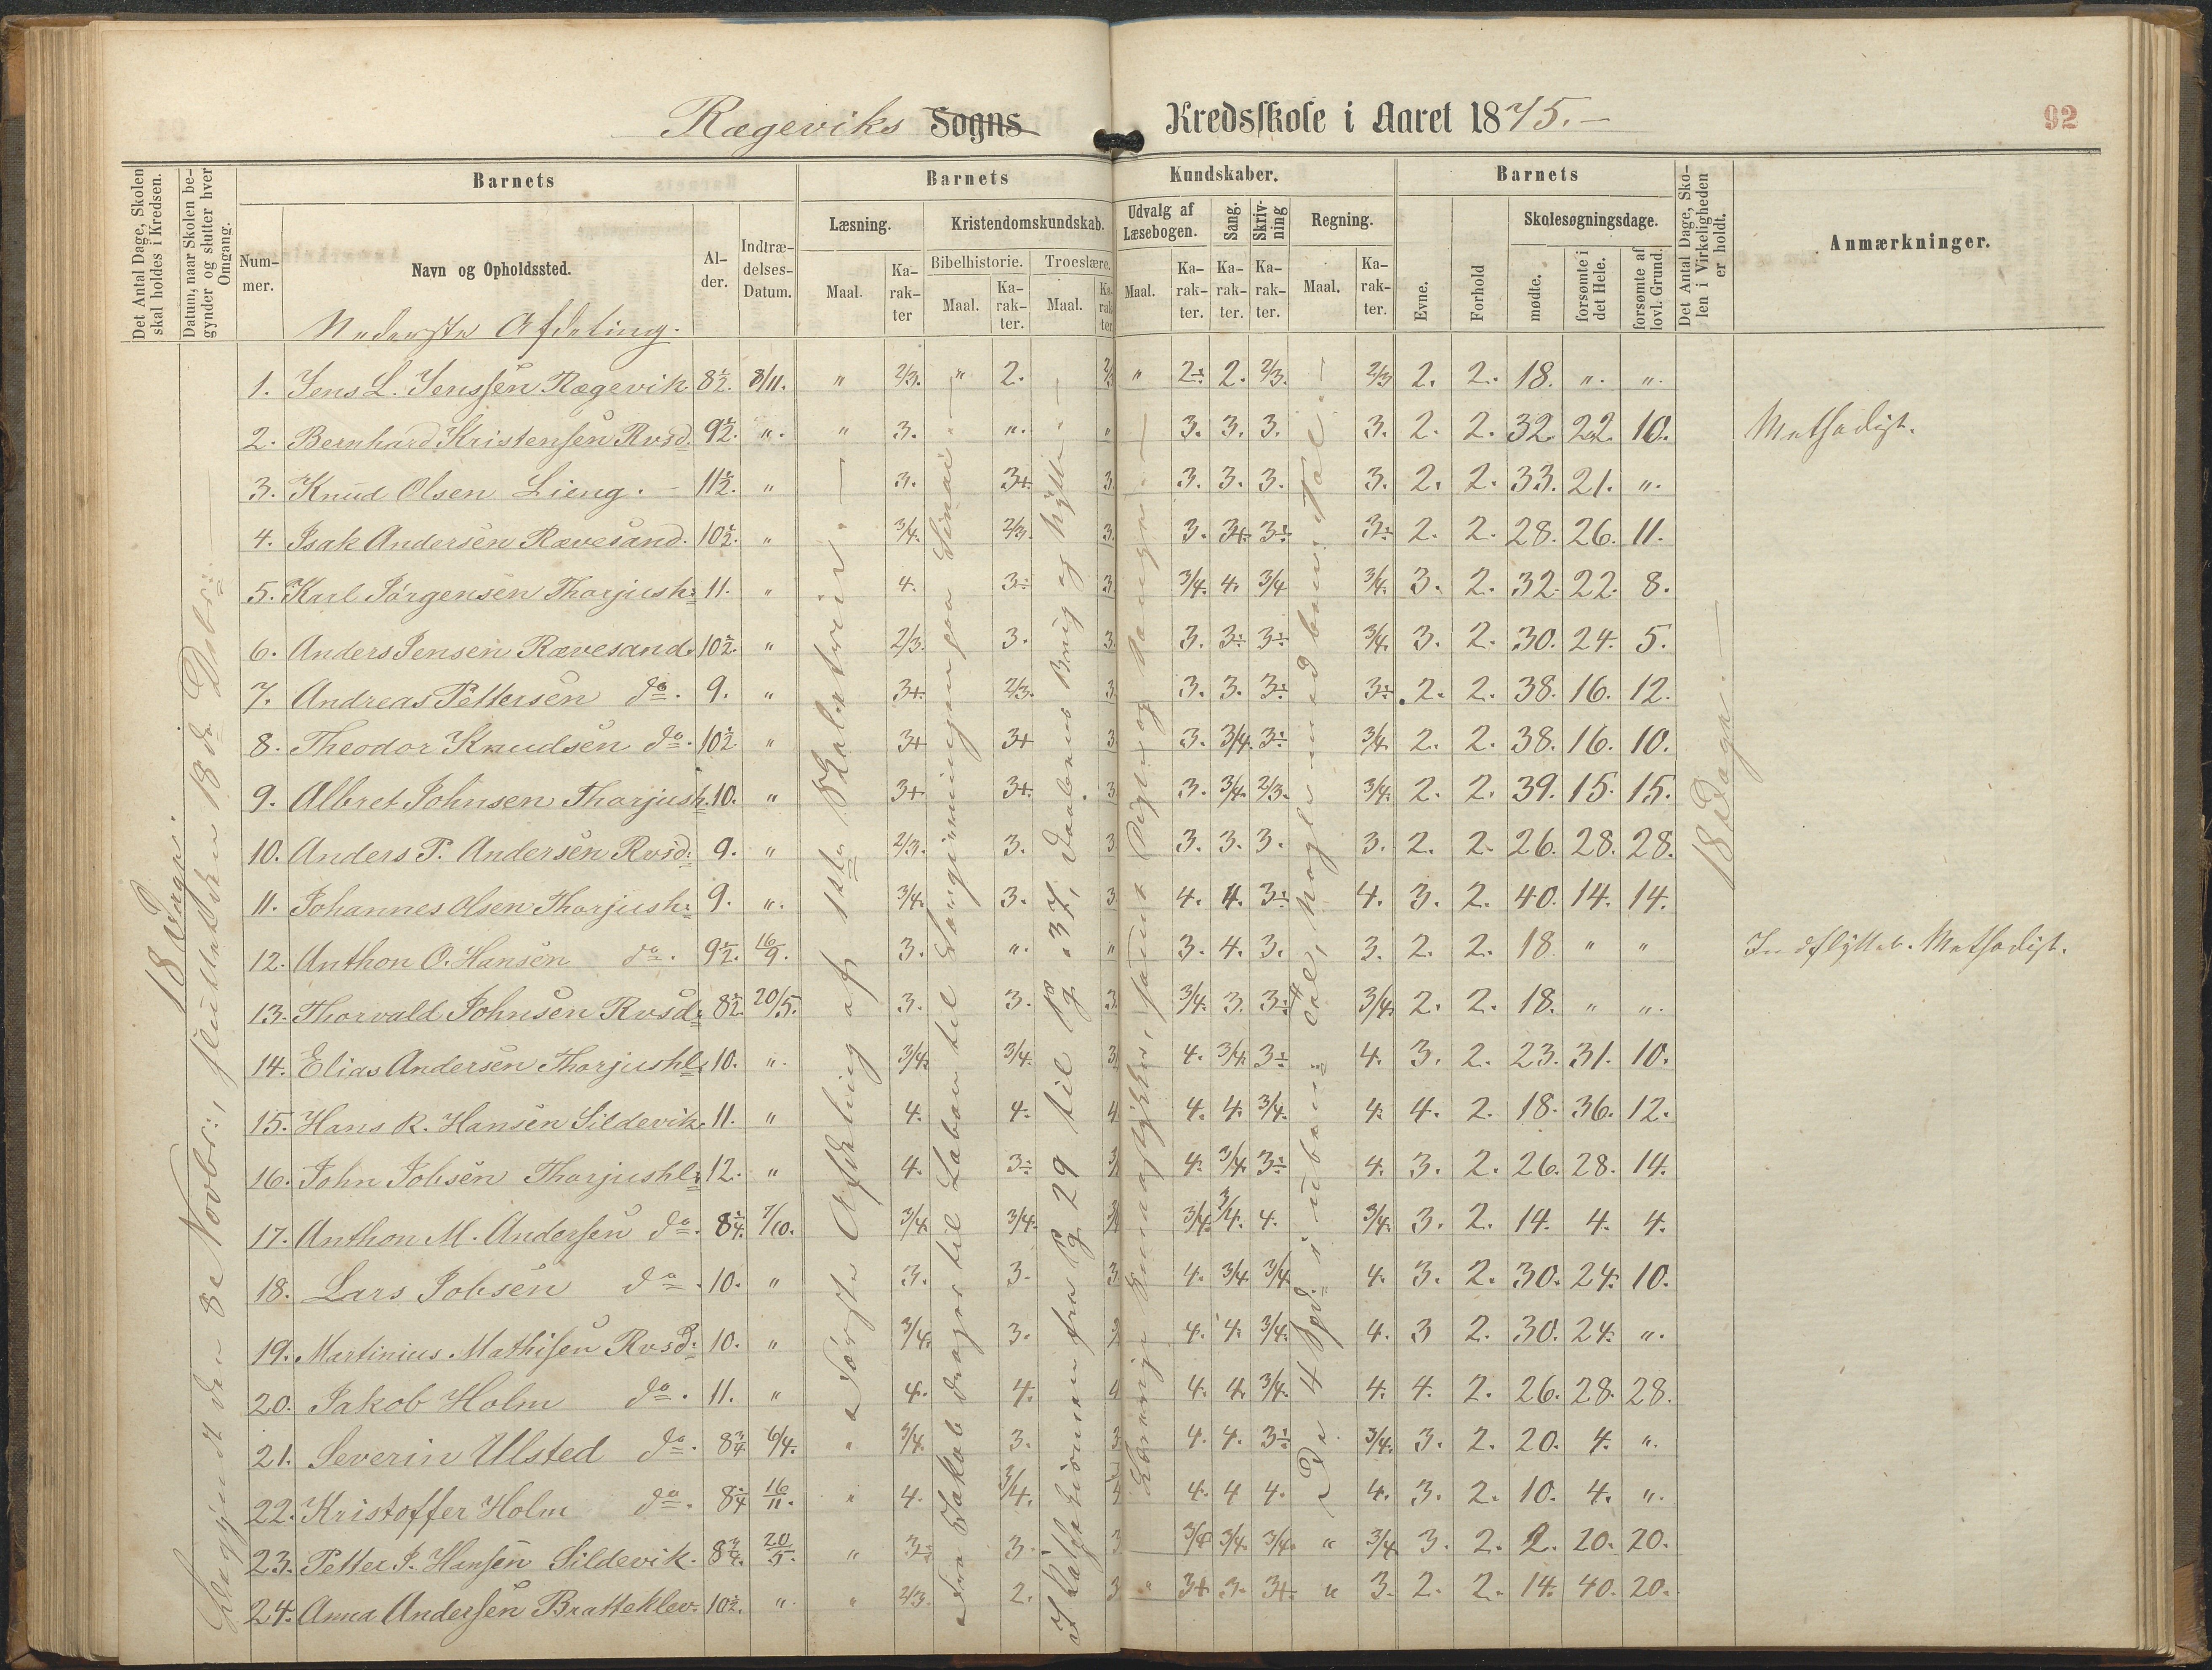 Rægeviks Sogns Kredsskole i Aaret 1875.-
92
Det Antal Dage, Skolen skal holdes i Kredsen.
Datum, naar Skolen begynder og slutter hver Omgang.
Barnets
Barnets Kundskaber.
Barnets
Det Antal Dage, Skolen i Virkeligheden er holdt.
Anmærkninger.
Nummer.
Navn og Opholdssted.
Alder.
Indtrædelses-Datum.
Læsning.
Kristendomskundskab.
Udvalg af Læsebogen.
Sang.
Skrivning
Regning.
Evne.
Forhold
Skolesøgningsdage.
Bibelhistorie.
Troeslære.
Maal.
Karakter
Maal.
Karakter.
Maal.
Karakter
Maal.
Karakter.
Karakter.
Karakter.
Maal.
Karakter.
mødte.
forsømte i det Hele.
forsømte af lovl. Grund.
Nederste Afdeling.
1. Jens L. Jenssen Rægevik 8½. 8/11. " 2/3. " 2. 2/3 " 2÷ 2. 2/3. 2/3 2. 2. 18. ". ".
2. Bernhard Kristensen Rvsd. 9½. ". " 3. ". " 3. 3. 3. 3. 2. 2. 32. 22. 10. Methodist.
3. Knud Olsen Lieng. - 11½. " 3. 3+. 3. 3. 3. 3. 3. 2. 2. 33. 21. ".
4. Isak Andersen Rævesand. 10½. " 3/4. 2/3. 3. 3. 3+ 3÷ 3÷ 2. 2. 28. 26. 11.
5. Karl Jørgensen Thorjush: 11. " 4. 3÷ 3. 3/4. 4. 3/4 3/4. 3. 2. 32. 22. 8.
6. Anders Jensen Rævesand. 10½. " 2/3. 3. 3. 3. 3÷ 3÷ 3/4. 3. 2. 30. 24. 5.
7. Andreas Pettersen do. 9. " 3+. 2/3. 3. 3. 3. 3÷ 3÷ 2. 2. 38. 16. 12.
8. Theodor Knudsen do. 10½ " 3+ 3+ 3 3. 3/4. 3÷ 3/4. 2. 2. 38. 16. 10.
9. Albret Johnsen Thorjush. 10. " 3+ 3+. 3 3. 3/4. 2/3. 3/4. 2. 2. 39. 15. 15.
10. Anders P. Andersen Rvsd: 9. " 2/3. 3. 3 3. 3. 3. 3. 2. 2. 26. 28. 28.
11. Johannes Olsen Thorjush: 9. ". 3/4. 3. 3 4. 4. 3÷ 4. 3. 2. 40. 14. 14.
12. Anthon O. Hansen do. 9½. 16/9. 3. ". " 3. 4. 3. 3. 2. 2. 18. " " Indflyttet. Methodist.
13. Thorvald Johnsen Rvsd: 8½. 20/5. 3. 3. 3. 3/4. 3. 3÷ 3/4. 2. 2. 18. " ".
14. Elias Andersen Thorjushl: 10. ". 3/4. 3/4. 3. 4. 3/4. 3÷ 4. 3. 2. 23. 31. 10.
15. Hans R. Hansen Sildevik. 11. " 4. 4. 4 4. 4. 3/4. 4. 4. 2. 18. 36. 12.
16. John Jobsen Thorjushl: 12. " 4. 3÷ 4. 3/4. 3÷ 4. 3. 2. 26. 28. 14.
17. Anthon M. Andersen do. 8¾. 7/10. 3/4. 3/4. 3/4. 3/4. 4. 3/4. 3. 2. 14. 4. 4.
18. Lars Jobsen do. 10. " 3. 3. 3 4. 3/4. 3/4. 4. 3. 2. 30. 24. 10.
19. Martinius Mathisen Rvsd: 10. " 3/4. 3. 4. 4. 3/4. 4. 3 2. 30. 24. ".
20. Jakob Holm do. 11. " 4. 4. 4 4. 4. 3/4. 4. 4. 2. 26. 28. 28.
21. Severin Ulsted do. 8¾ 6/4. " 3/4. 3. 3 4. 4. 3÷ 3/4. 3. 2. 20. 4. ".
22. Kristoffer Holm do. 8¾ 16/11. " 4. 3/4. 4. 4 4. 4. 3. 2. 10. 4. ".
23. Petter J. Hansen Sildevik. 8¾. 20/5. " 3÷ 3. 3 3/4 3/4. 3/4. " 3/4 3. 2. 2. 20. 20.
24. Anna Andersen Bratteklev. 10½. ". " 2/3. 2. 3 " 3+ 3. 3+. " 3. 2. 2. 14. 40. 20.
18 Dage.
Begyndt den 8e Novbr:, sluttet den 18de Debr:
Første Afdeling af 1ste Skoletrin.
Fra Jakob drager til Laban til Lovgivningen paa Sinai
Af Katekismen fra Pg. 29 til Pg. 37, Daabens Brug og Nytte
De 4 Spd: i ubenævnte Tal, nogle med benævnte Tal.
18 Dage.